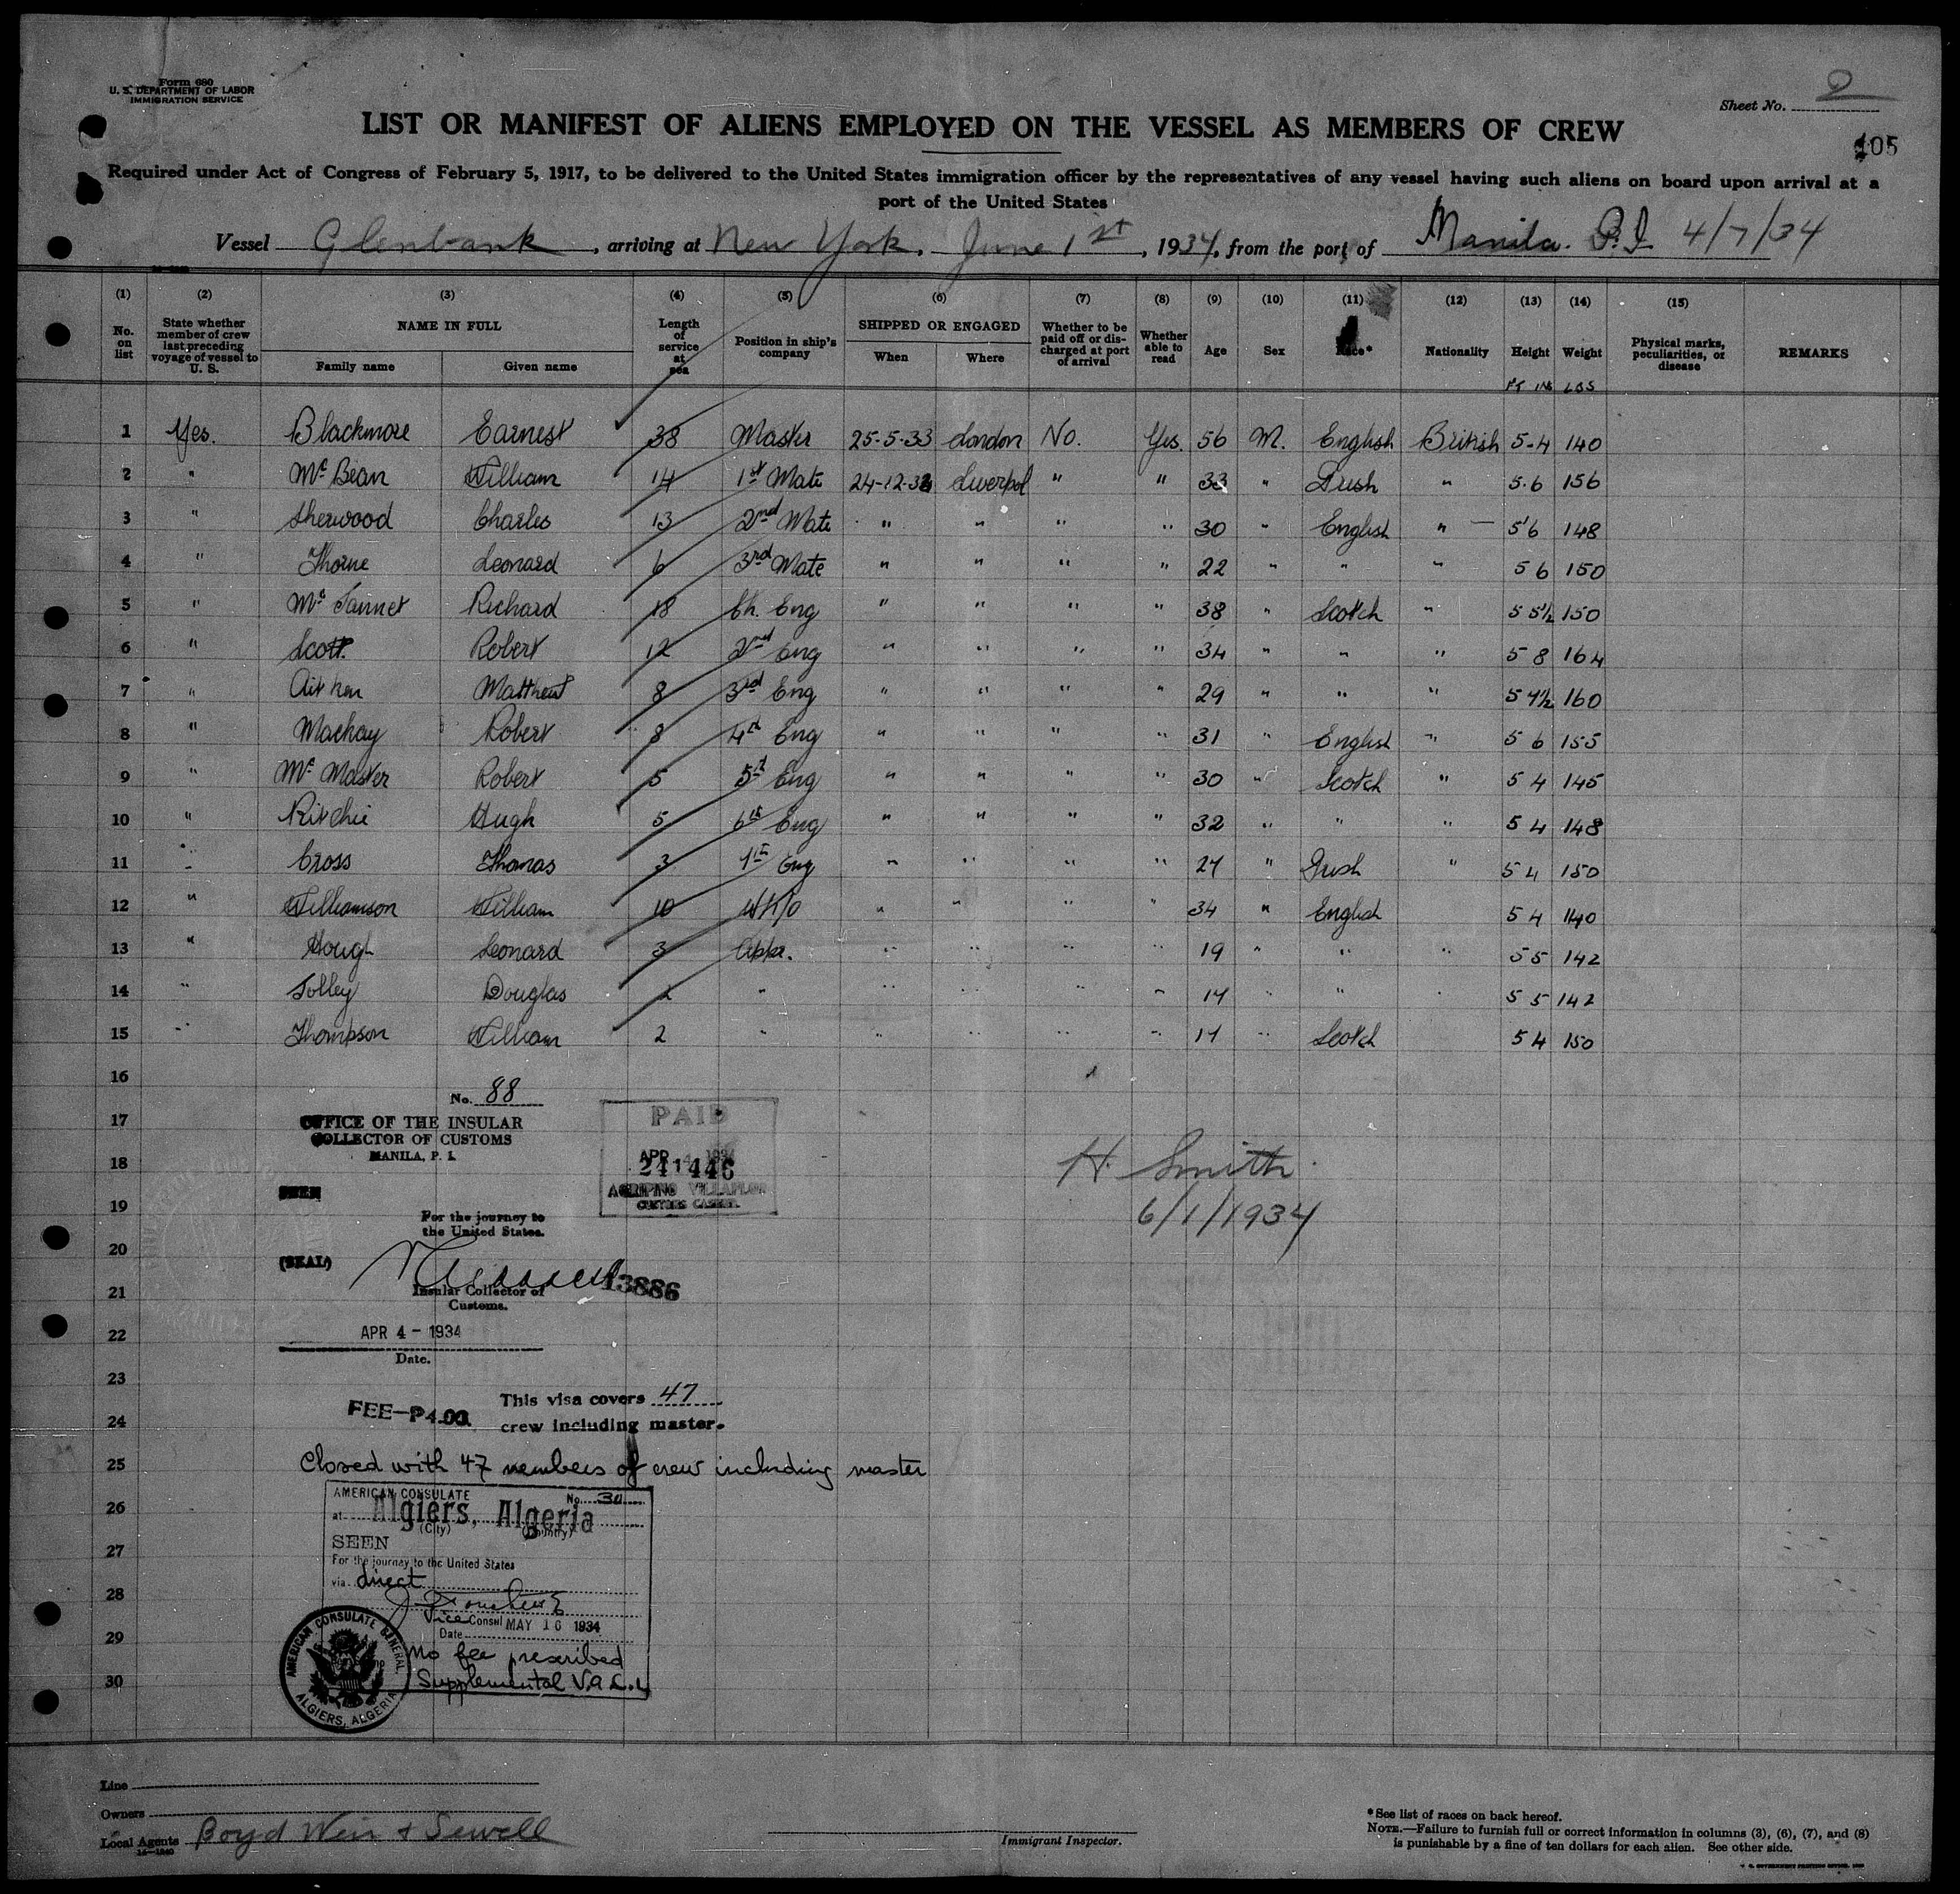 Form 680
U. S. DEPARTMENT OF LABOR
IMMIGRATION SERVICE
Sheet No. 2
LIST OR MANIFEST OF ALIENS EMPLOYED ON THE VESSEL AS MEMBERS OF CREW
105
Required under Act of Congress of February 5, 1917, to be delivered to the United States immigration officer by the representatives of any vessel having such aliens on board upon arrival at a
port of the United States
Vessel Glenbank, arriving at New York, June 1st, 1934, from the port of Manila. P.I. 4/7/34
(1) (2) (3) (4) (5) (6) (7) (8) (9) (10) (11) (12) (13) (14) (15)
No. on list State whether member of crew last preceding voyage of vessel to U. S. NAME IN FULL Length of service at sea Position in ship's company SHIPPED OR ENGAGED Whether to be paid off or discharged at port of arrival Whether able to read Age Sex Race* Nationality Height Weight Physical marks, peculiarities, or disease REMARKS
Family name Given name When Where
Ft ins Lbs
1 Yes. Blackmore Earnest 38 Master 25-5-33 London No. Yes. 56 M. English British 5-4 140
2 " Mc Bean William 14 1st Mate 24-12-33 Liverpol " " 33 " Irish " 5.6 156
3 " Sherwood Charles 13 2nd Mate " " " " 30 " English " 5'6 148
4 " Thorne Leonard 6 3rd Mate " " " " 22 " " " 5 6 150
5 " Richard 18 Ch. Eng " " " " 38 " Scotch " 5 5½ 150
6 " Scott Robert 12 2nd Eng " " " " 34 " " " 5 8 164
7 " Aitken Matthew 8 3rd Eng " " " " 29 " " " 5 7½ 160
8 " Mackay Robert 8 4th Eng " " " " 31 " English " 5 6 155
9 " Mc Master Robert 5 5th Eng " " " " 30 " Scotch " 5 4 145
10 " Ritchie Hugh 5 6th Eng " " " " 32 " " " 5 4 148
11 " Cross Thomas 3 7th Eng " " " " 27 " Irish " 5 4 150
12 " Williamson William 10 W/T/O " " " " 34 " English 5 4 140
13 " Hough Leonard 3 Appr. " " " " 19 " " " 5 5 142
14 " Tolley Douglas 2 " " " " " 17 " " " 5 5 142
15 " Thompson William 2 " " " " " 17 " Scotch 5 4 150
16
No. 88
17 OFFICE OF THE INSULAR
COLLECTOR OF CUSTOMS
MANILA, P. I.
PAID
APR 4 1934
241446
AGRIPINO VILLAFLOR
CUSTOMS CASHIER.
18
H. Smith
6/1/1934
SEEN
19
For the journey to
the United States.
20
(SEAL)
13886
21 Insular Collector of
Customs.
22 APR 4 - 1934
Date.
23
This visa covers 47
FEE—P4.00.
24 crew including master.
25 Closed with 47 members of crew including master
AMERICAN CONSULATE
No. 30
26 at Algiers, Algeria
(City) (Country)
27 SEEN
For the journey to the United States
via direct
28
Vice Consul MAY 16 1934
29 Date
No fee prescribed
30 Supplemental Visa
AMERICAN CONSULATE GENERAL,
ALGIERS, ALGERIA
Line
Owners
Local Agents Boyd Weir & Sewell
14—1240
Immigrant Inspector.
*See list of races on back hereof.
NOTE.—Failure to furnish full or correct information in columns (3), (6), (7), and (8)
is punishable by a fine of ten dollars for each alien. See other side.
U. S. GOVERNMENT PRINTING OFFICE